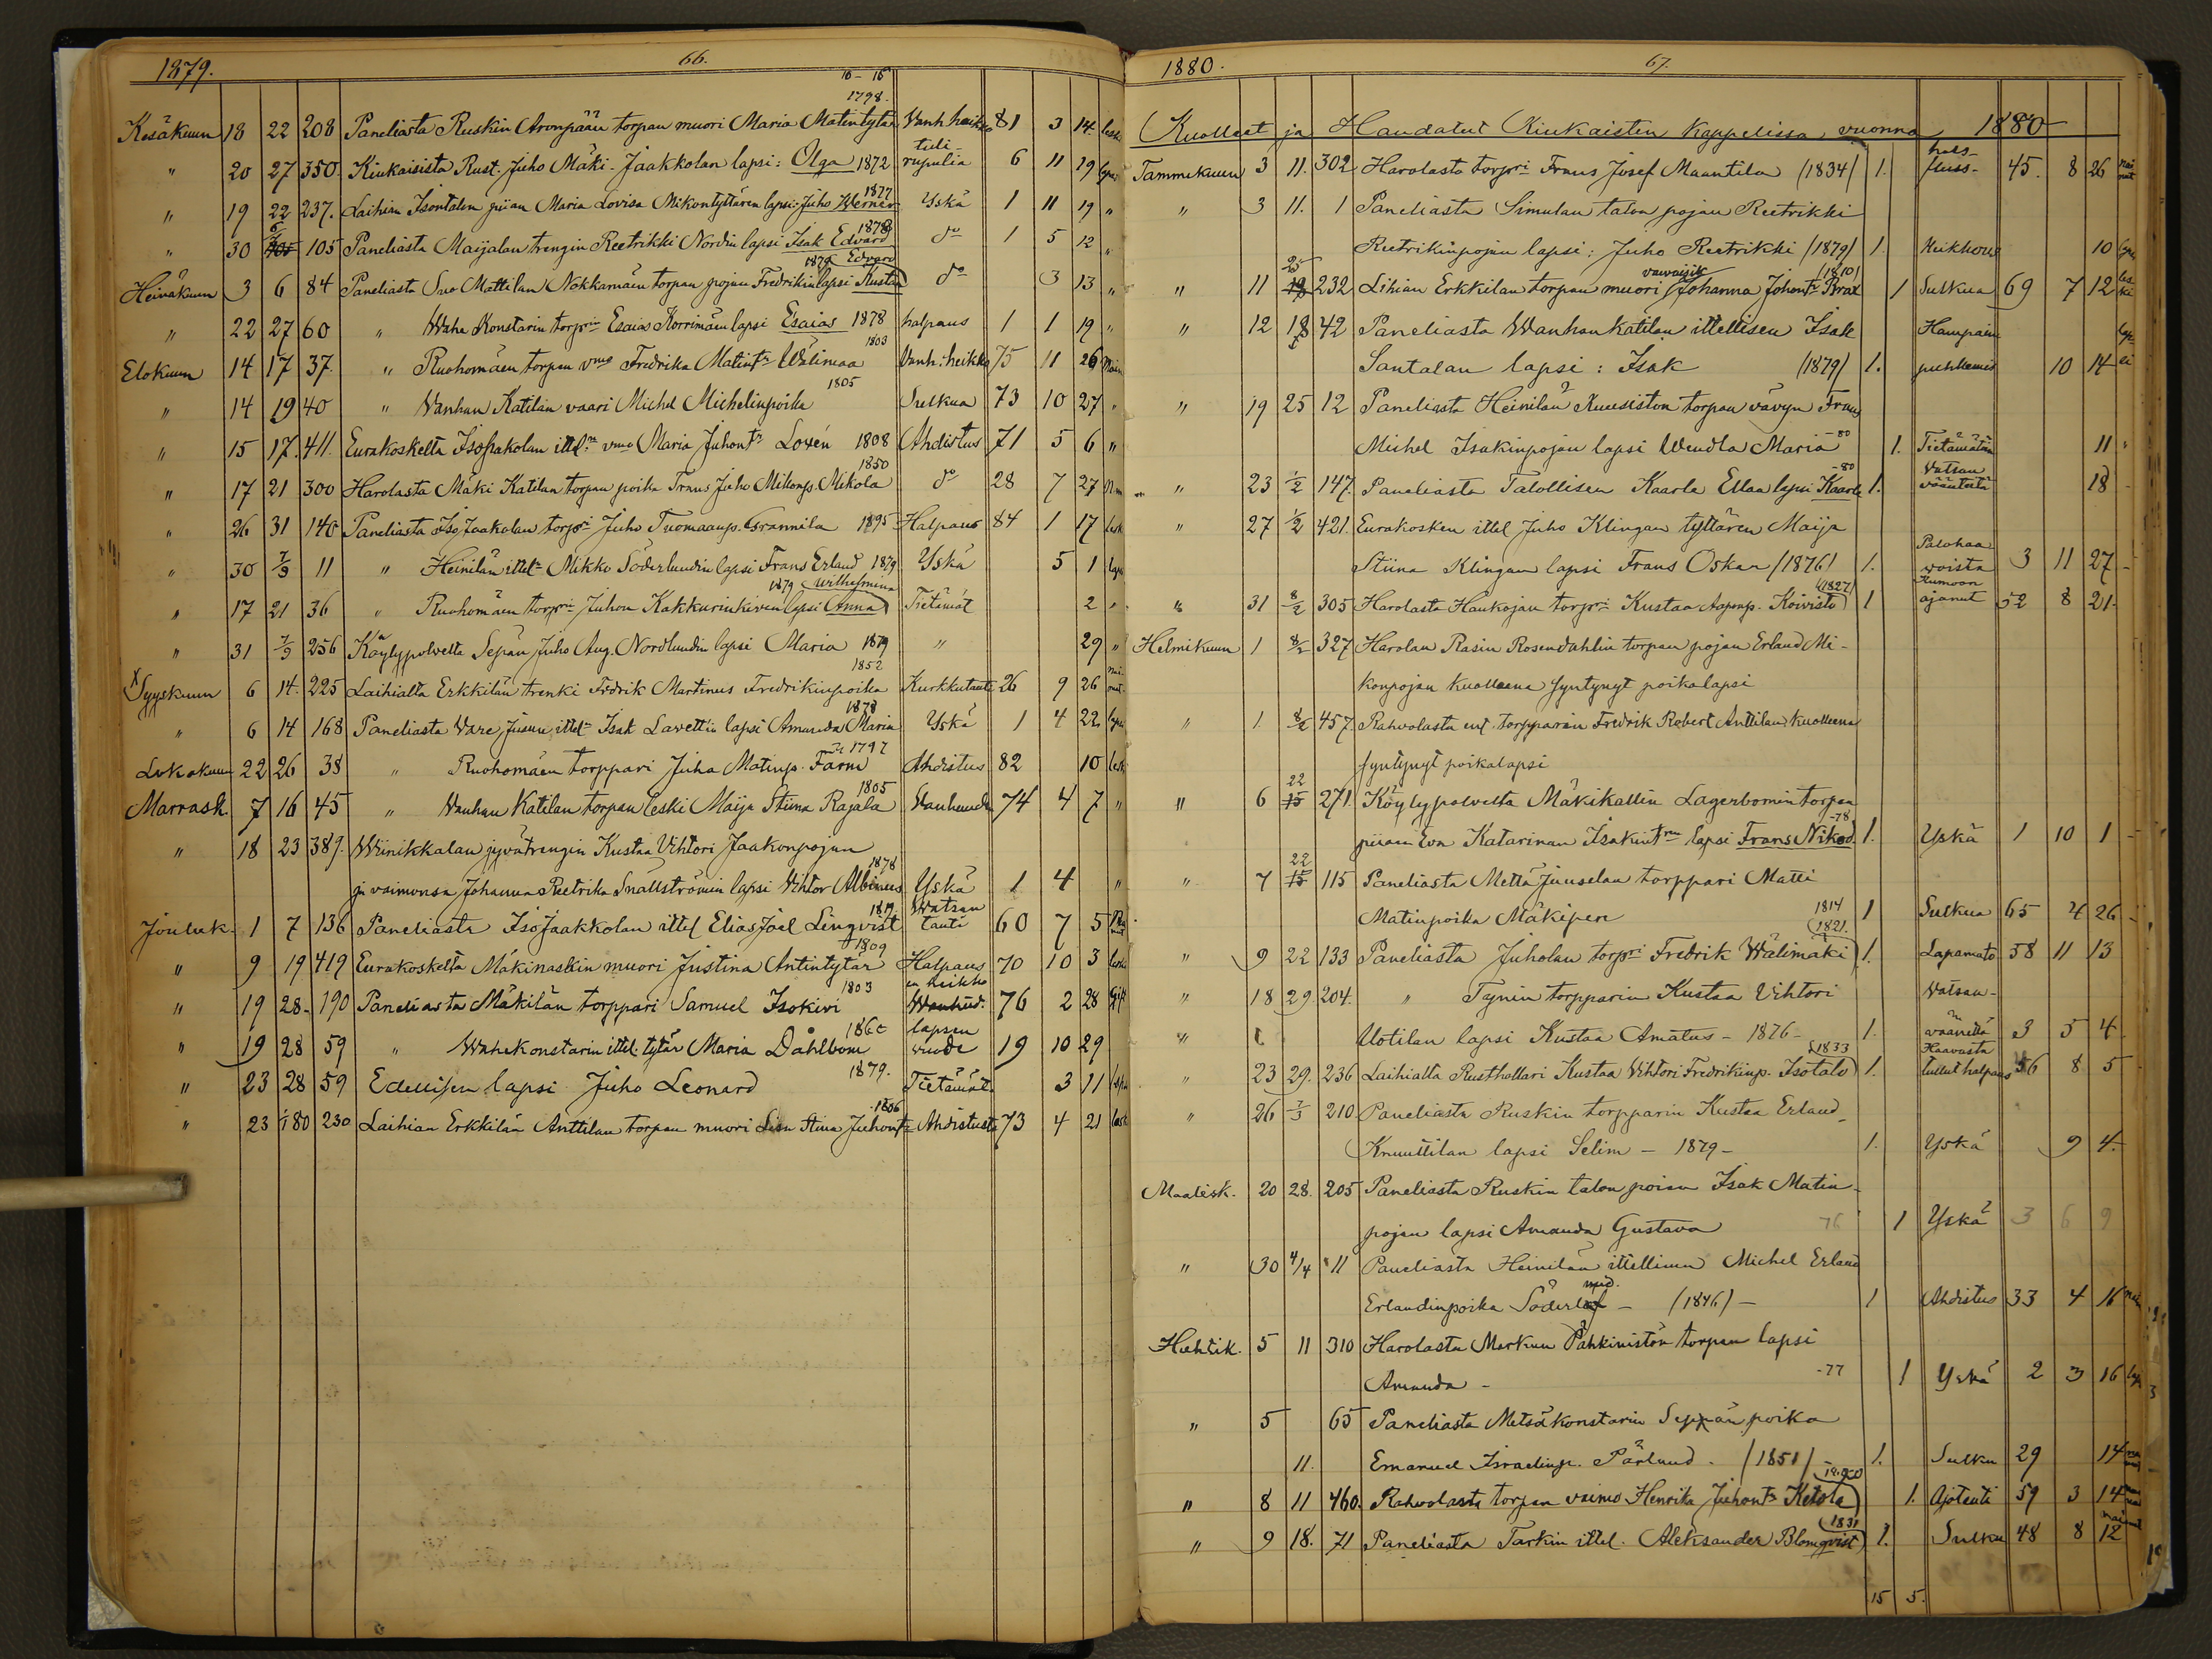 1879. 66.
16 - 15
1798.
Kesäkuun 18 22 208 Paneliasta Ruskin Aronpään torpan muori Maria Matintytär Vanh. heikko 81 3 14 leski
" 20 27 350. Kiukaisista Rust. Juho Mäki-Jaakkolan lapsi: Olga 1872 tulirupulia 6 11 19 lapsi
" 19 22 237. Laihian Isontalon piian Maria Lovisa Mikontyttären lapsi Juho Werner 1877 Yskä 1 11 19 "
" 30 6/7 105 Paneliasta Maijalan trengin Reetrikki Nordin lapsi Isak Edvard 1878 do 1 5 12 "
Heinäkuun 3 6 84 Paneliasta Suo Mattilan Nokkamäen torpan pojan Fredrikin lapsi Kusta Edvard 1879 do 3 13 "
" 22 27 60 " Wähe Konstarin torprin Esaias Korrimäen lapsi Esaias 1878 halpaus 1 1 19 "
Elokuun 14 17 37 " Ruohomäen torpan vmo Fredrika Matintr Wälimaa 1803 Vanh: heikko 75 11 26 Nain
" 14 19 40 " Vanhan Katilan vaari Michel Michelinpoika 1805 Sulkua 73 10 27 "
" 15 17. 411. Eurakoskelta Isopakolan ittel:n vmo Maria Juhontr Loxén 1808 Ahdistus 71 5 6 "
" 17 21 300 Harolasta Mäki Katilan torpan poika Frans Juho Mikonp. Mikola 1850 do 28 7 27 N.m
" 26 31 140 Paneliasta Iso Jaakolan torpri Juho Tuomaanp. Grannila 1895 Halpaus 84 1 17 lesk
" 30 7/9 11 " Heinilän ittel:n Mikko Söderlundin lapsi Frans Erland 1879 Yskä 5 1 laps
" 17 21 36 " Ruohomäen torprin Juhon Kakkurinkiven lapsi Anna Wilhelmina 1879 Tietämät 2 "
" 31 7/9 256 Köylypolvelta Sepän Juho Aug. Nordlundin lapsi Maria 1879 " 29 "
x Syyskuun 6 14. 225 Laihialta Erkkilän trenki Fredrik Martinus Fredrikinpoika 1852 Kurkkutauti 26 9 26 naimat.
" 6 14 168 Paneliasta Vare Jusun ittel:n Isak Lavettin lapsi Amanda Maria 1878 Yskä 1 4 22 lapsi
Lokakuun 22 26 38 " Ruohomäen torppari Juha Matinp. Farm 1797 Ahdistus 82 10 lesk
Marrask. 7 16 45 " Vanhan Katilan torpan leski Maija Stiina Rajala 1805 Vanhuude 74 4 7 "
" 18 23 389. Wiinikkalan pyvätrengin Kustaa Vihtori Jaakonpojan
ja vaimonsa Johanna Reetrika Snällströmin lapsi Vihtor Albinus 1878 Yskä 1 4 "
Jouluk. 1 7 136 Paneliasta Iso Jaakkolan ittel Elias Joel Linqvist 1819 Watsan tauti 60 7 5
" 9 19 419 Eurakoskelta Mäkinaskin muori Justina Antintytär 1809 Halpaus 70 10 3 leski
" 19 28. 190 Paneliasta Mäkilän torppari Samuel Isokivi 1803 en heikko Wanhud. 76 2 28 Gift
" 19 28 59 " Wähekonstarin ittel. tytär Maria Dahlbom 1860 lapsen vuode 19 10 29
" 23 28 59 Edellisen lapsi Juho Leonard 1879. Tietämät 3 11 lapsi
" 23 1/80 230 Laihian Erkkilän Anttilan torpan muori Lisa Stina Juhontr 1806 Ahdistusta 73 4 21 lesk
1880. 67.
Kuolleet ja Haudatut Kiukaisten kappelissa, vuonna 1880
Tammikuun 3 11. 302 Harolasta torpri Frans Josef Maantila (1834) 1. halsfluss- 45. 8 26 nainut
" 3 11. 1 Paneliasta Simulan talon pojan Reetrikki
Reetrikinpojan lapsi: Juho Reetrikki (1879) 1. Heikkous 10 lapsi
" 11 25 232 Lihian Erkkilan torpan muori vaivaisik Johanna Johontr Brax (1810) 1 Sulkua 69 7 12 leski
" 12 18 42 Paneliasta Wanhankatilan ittellisen Isak
Santalan lapsi: Isak (1879) 1. Hampain puhkemis 10 14
" 19 25 12 Paneliasta Heinilän Kuusiston torpan vävyn Frans
Michel Isakinpojan lapsi Wendla Maria -80 1. Tietämätön 11 "
" 23 1/2 147. Paneliasta Talollisen Kaarle Ellan lapsi Kaarle -80 1. Watsan vääntestä 18 -
" 27 1/2 421. Eurakosken ittel Juho Klingan tyttären Maija
Stiina Klingan lapsi Frans Oskar (1876) 1. Palohaavoista 3 11 27 -
" 31 8/2 305 Harolasta Haukojan torpri Kustaa Aaponp. Koivisto (1827) 1 Kumoon ajanut 52 8 21.
Helmikuun 1 8/2 327 Harolan Rasin Rosendahlin torpan pojan Erland Mikonpojan
kuolleena syntynyt poikalapsi
" 1 8/2 457. Rahvolasta ent. torpparin Fredrik Robert Anttilan kuolleena
syntynyt poikalapsi
" 6 22 271. Köylypolvelta Mäkikallin Lagerbomin torpan
piian Eva Katarinan Isakintren lapsi Frans Nikod. -78 1. Yskä 1 10 1 -
" 7 22 115 Paneliasta Mettä Juuselan torppari Matti
Matinpoika Mäkipere 1814 1 Sulkua 65 4 26 -
" 9 22 133 Paneliasta Juholan torpri Fredrik Wälimäki (1821. 1. Lapamato 58 11 13
" 18 29 204. " Tynin torpparin Kustaa Vihtori
Uotilan lapsi Kustaa Amatus - 1876 - 1. Watsanväänettä 3 5 4.
" 23 29. 236 Laihialta Rusthollari Kustaa Vihtori Fredrikinp. Isotalo 1833 1. Haavasta tullut halpaus 56 8 5
" 26 7/3 210 Paneliasta Ruskin torpparin Kustaa Erland
Knuuttilan lapsi Selim - 1879 - 1. Yskä 9 4.
Maalisk. 20 28. 205 Paneliasta Ruskin talon pojan Isak Matinpojan
lapsi Amanda Gustava 76 1 Yskä 3 6 9
" 30 4/4 11 Paneliasta Heinilän ittellinen Michel Erland
Erlandinpoika Söderlund. - (1846) - 1 Ahdistus 33 4 16
Huhtik. 5 11 310 Harolasta Markun Pähkinistön torpan lapsi
Amanda - -77 1 Yskä 2 3 16 laps
" 5 65 Paneliasta Metsäkonstarin Sepän poika
11. Emanuel Israelinp. Pärlund. (1851) - 1. Sulku 29 14
" 8 11 460. Rahvolasta torpan vaimo Henrika Juhontr Ketola 1. Ajotauti 59 3 14
" 9 18. 71 Paneliasta Tarkin ittel. Aleksander Blomqvist 1831 1. Sulku 48 8 12
15 5.